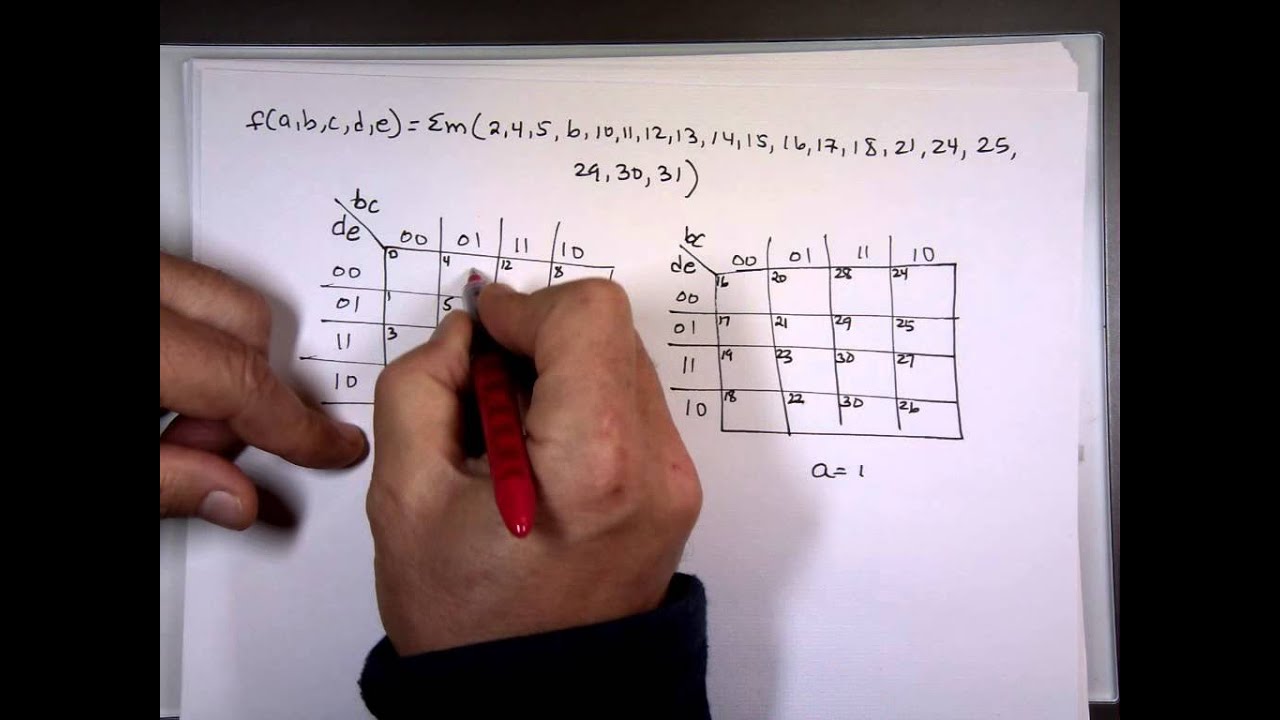 f(a,b,c,d,e) = Σm(2,4,5,6,10,11,12,13,14,15,16,17,18,21,24,25,
29,30,31)
bc
de 00 01 11 10
00 0 4 12 8
01 1 5
11 3
10
bc
de 00 01 11 10
00 16 20 28 24
01 17 21 29 25
11 19 23 30 27
10 18 22 30 26
a=1